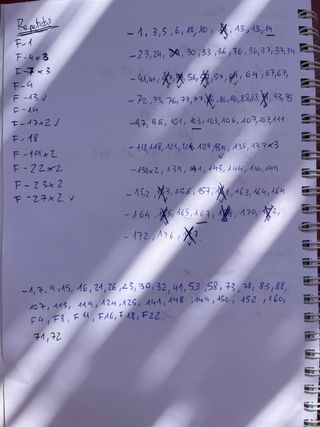 Repetits
F-1
F-4x3
F-7x3
F-9
F-13 ✓
F-14
F-17x2 ✓
F-18
F-19x2
F-22x2
F-23x2
F-27x2 ✓
-1, 3, 5, 6, 10, 10, 13, 13, 14
-23, 24, 30, 33, 36, 36, 36, 37, 37, 39
-41, 41, 56, 64, 67, 67,
-72, 73, 76, 77, 77, 86, 86, 88, 88, 93, 95
-97, 98, 101, 103, 103, 106, 107, 107, 111
-118, 118, 121, 129, 136, 137x3
139, 141, 143, 144, 144, 144
-152, 156, 157, 163, 164, 164
-164, 165, 167, 170,
-172, 176,
-1, 7, 9, 15, 16, 21, 26, 23, 30, 32, 41, 53, 58, 73, 78, 83, 88,
107, 113, 119, 124, 125, 141, 148, 149, 150, 152, 160,
F4, F8, F11, F16, F18, F22
71, 72